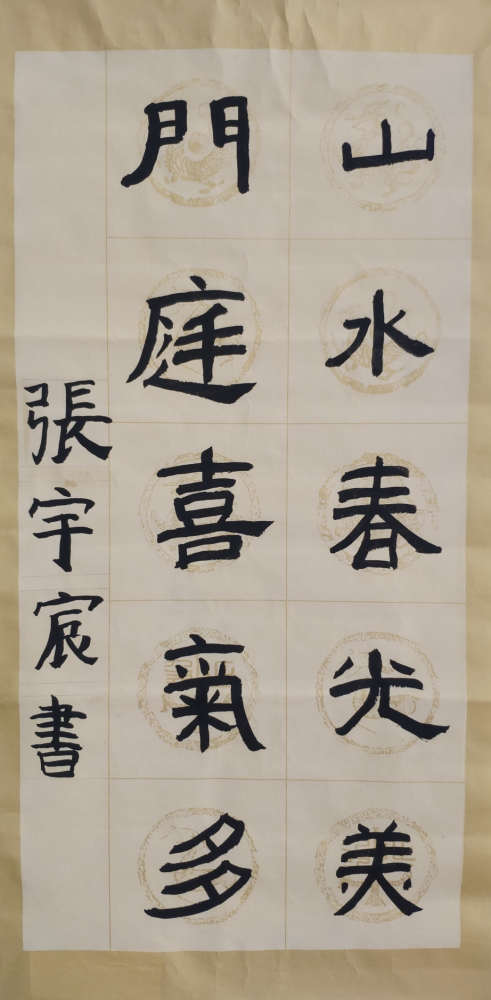 山水春光美
門庭喜氣多
張宇宸書